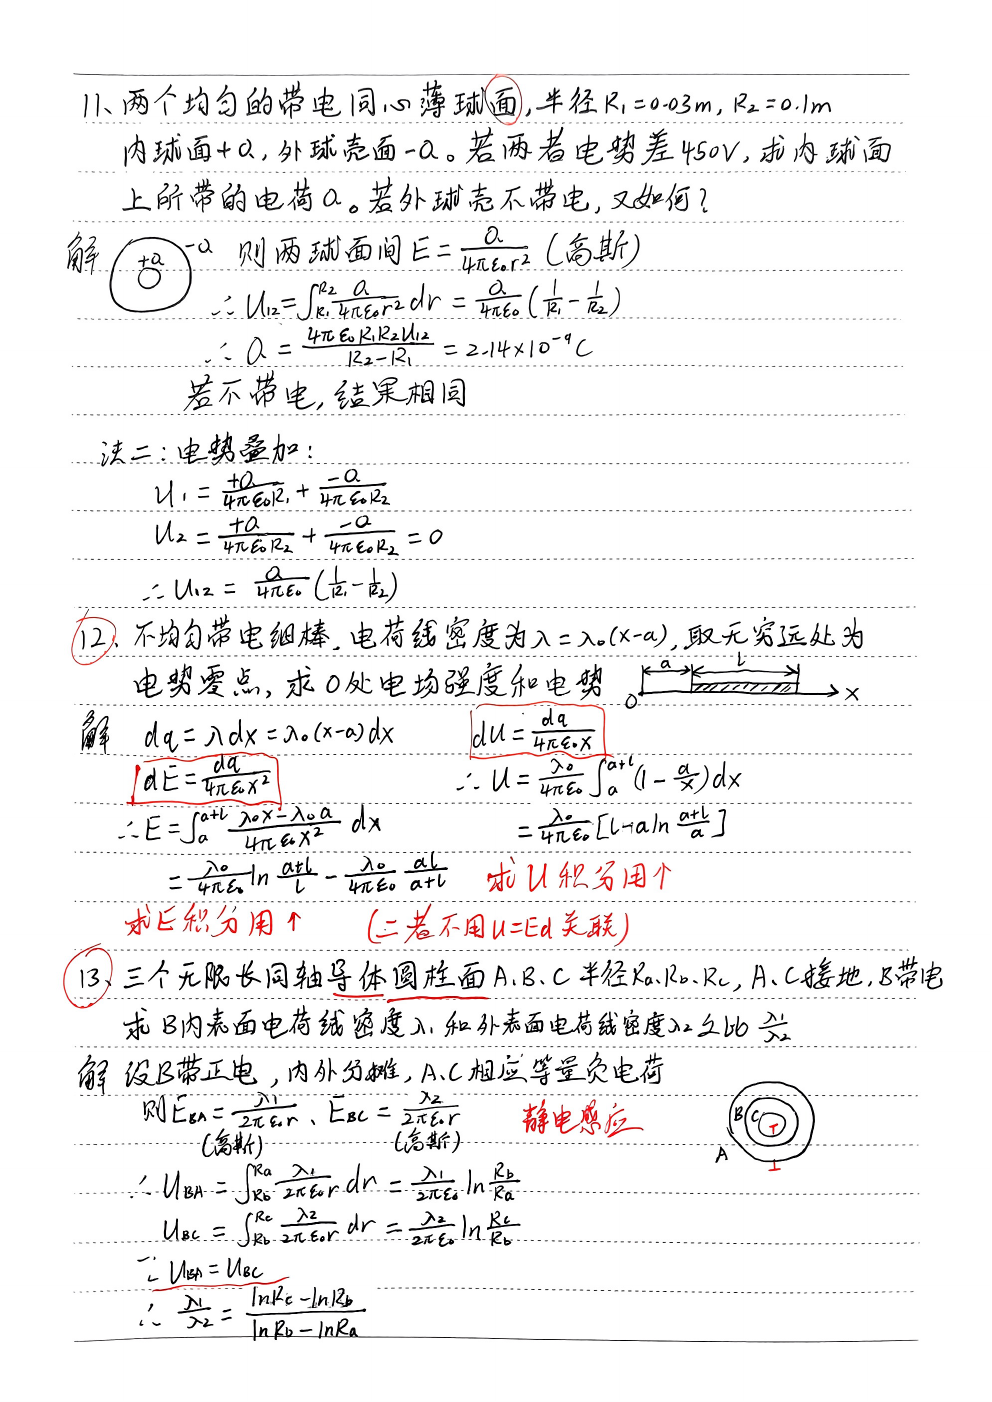 11、两个均匀的带电同心薄球面，半径R₁=0.03m, R₂=0.1m
内球面+Q，外球壳面-Q。若两者电势差450V，求内球面
上所带的电荷Q。若外球壳不带电，又如何？
解 +Q -Q 则两球面间E=Q/4πε₀r² (高斯)
∴U₁₂=∫_{R₁}^{R₂} Q/4πε₀r² dr = Q/4πε₀ (1/R₁ - 1/R₂)
∴ Q = 4πε₀R₁R₂U₁₂/R₂-R₁ = 2.14×10⁻⁹C
若不带电，结果相同
法二：电势叠加：
U₁ = +Q/4πε₀R₁ + -Q/4πε₀R₂
U₂ = +Q/4πε₀R₂ + -Q/4πε₀R₂ = 0
∴U₁₂ = Q/4πε₀ (1/R₁ - 1/R₂)
12、不均匀带电细棒，电荷线密度为λ=λ₀(x-a)，取无穷远处为
电势零点，求O处电场强度和电势
a L O x
解 dq=λdx=λ₀(x-a)dx
dU = dq/4πε₀x
dE = dq/4πε₀x²
∴ U = λ₀/4πε₀ ∫_a^{a+l} (1 - a/x)dx
∴E=∫_a^{a+l} λ₀x-λ₀a/4πε₀x² dx
= λ₀/4πε₀ [l-a ln a+l/a]
= λ₀/4πε₀ ln a+l/l - λ₀/4πε₀ al/a+l
求U积分用↑
求E积分用↑
(二者不用U=Ed关联)
13、三个无限长同轴导体圆柱面A、B、C 半径Ra、Rb、Rc，A、C接地，B带电
求B内表面电荷线密度λ₁和外表面电荷线密度λ₂之比 λ₁/λ₂
解 设B带正电，内外分摊，A、C相应等量负电荷
则E_BA = λ₁/2πε₀r、E_BC = λ₂/2πε₀r
(高斯) (高斯)
静电感应
A B C
∴ U_BA = ∫_{Rb}^{Ra} λ₁/2πε₀r dr = λ₁/2πε₀ ln Rb/Ra
U_BC = ∫_{Rb}^{Rc} λ₂/2πε₀r dr = λ₂/2πε₀ ln Rc/Rb
∵ U_BA = U_BC
∴ λ₁/λ₂ = lnRc-lnRb/lnRb-lnRa